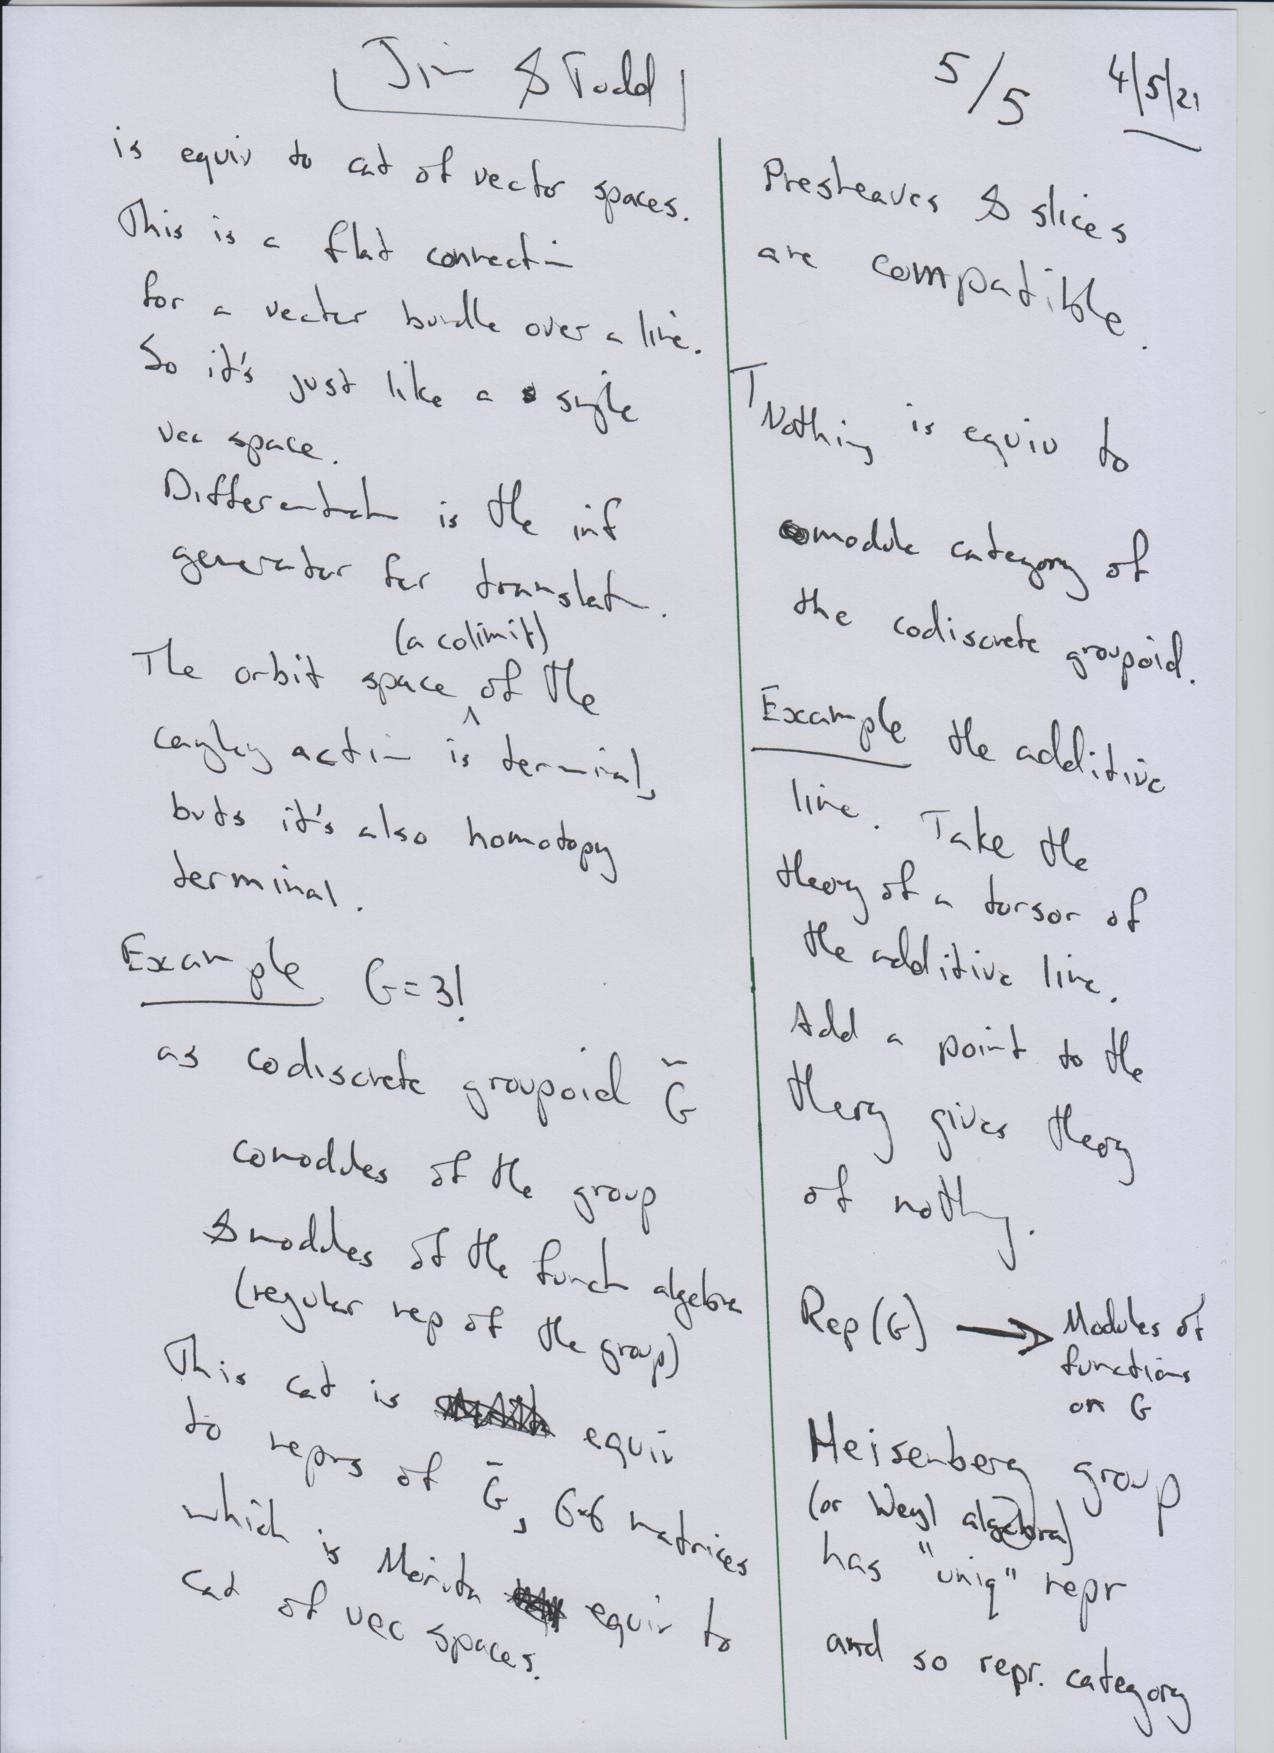 Jim & Todd
5/5
4/5/21
is equiv to cat of vector spaces.
This is a flat connection
for a vector bundle over a line.
So it's just like a single
vec space.
Differentiation is the inf
generator for translation.
(a colimit)
The orbit space ^ of the
cayley action is terminal,
buts it's also homotopy
terminal.
Example G=3!
as codiscrete groupoid G̃
comodules of the group
& modules of the funct algebra
(regular rep of the group)
This cat is equiv
to reprs of G̃, 6x6 matrices
which is Morita equiv to
cat of vec spaces.
Presheaves & slices
are compatible.
Nothing is equiv to
module category of
the codiscrete groupoid.
Example the additive
line. Take the
theory of a torsor of
the additive line.
Add a point to the
theory gives theory
of nothing.
Rep(G) → Modules of
functions
on G
Heisenberg group
(or Weyl algebra)
has "uniq" repr
and so repr. category